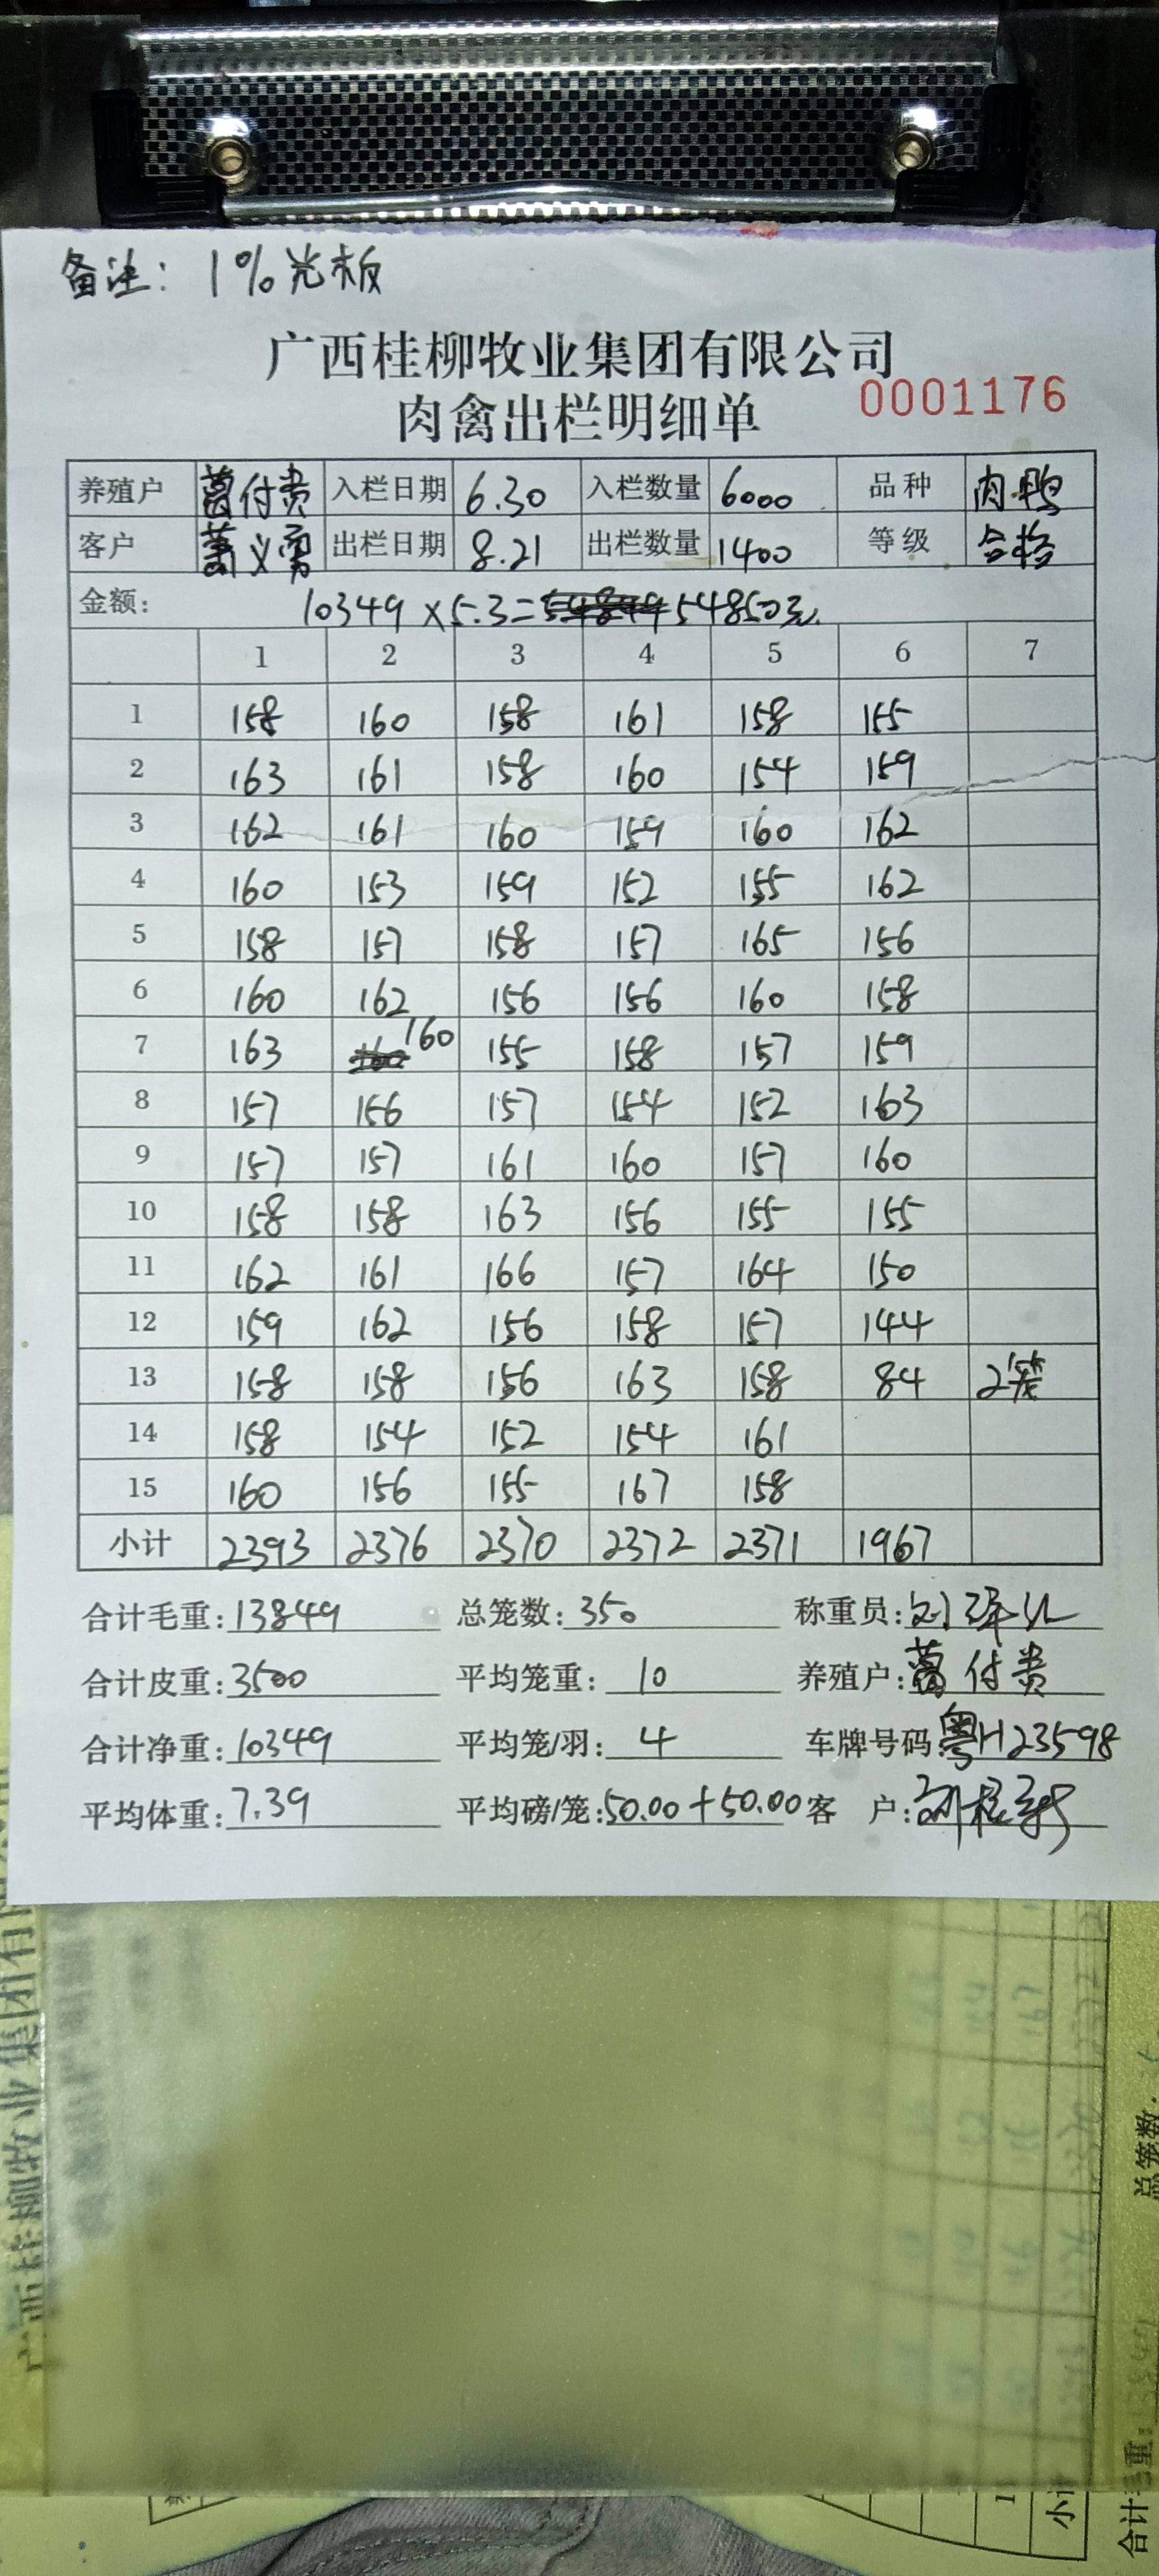 备注：1%光板
广西桂柳牧业集团有限公司
肉禽出栏明细单
0001176
养殖户 付贵 入栏日期 6.30 入栏数量 6000 品种 肉鸭
客户 义勇 出栏日期 8.21 出栏数量 1400 等级 合格
金额： 10349×5.3= 54850元
1 2 3 4 5 6 7
1 158 160 158 161 158 155
2 163 161 158 160 154 159
3 162 161 160 159 160 162
4 160 153 159 152 155 162
5 158 157 158 157 165 156
6 160 162 156 156 160 158
7 163 160 155 158 157 159
8 157 156 157 154 152 163
9 157 157 161 160 157 160
10 158 158 163 156 155 155
11 162 161 166 157 164 150
12 159 162 156 158 157 144
13 158 158 156 163 158 84 2笼
14 158 154 152 154 161
15 160 156 155 167 158
小计 2393 2376 2370 2372 2371 1967
合计毛重：13849 总笼数：350 称重员：
合计皮重：3500 平均笼重：10 养殖户：付贵
合计净重：10349 平均笼/羽：4 车牌号码：粤H23598
平均体重：7.39 平均磅/笼：50.00+50.00 客 户：